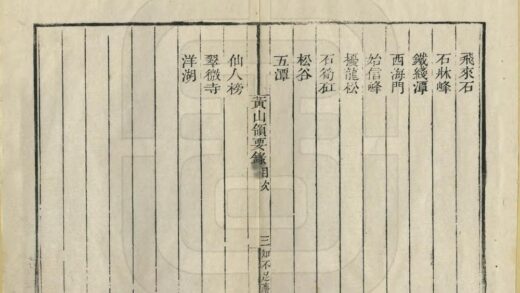 飛來石
石牀峰
鐵綫潭
西海門
始信峰
擾龍松
石筍矼
松谷
五潭
黃山領要錄 目次 三 知不足
仙人榜
翠微寺
洋湖